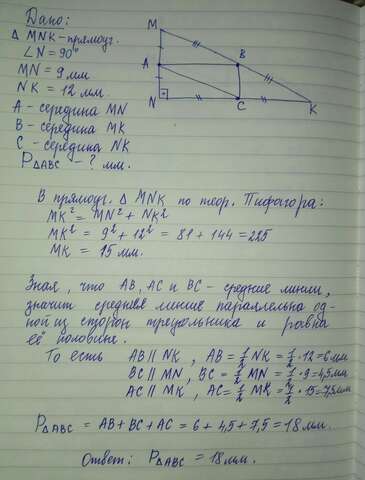 Дано:
△ MNK - прямоуг.
∠N = 90°
MN = 9 мм
NK = 12 мм.
A - середина MN
B - середина MK
C - середина NK
P△ABC - ? мм.
M
A
B
N
C
K
В прямоуг. △ MNK по теор. Пифагора:
MK² = MN² + NK²
MK² = 9² + 12² = 81 + 144 = 225
MK = 15 мм.
Зная, что AB, AC и BC - средние линии,
значит средняя линие параллельна од-
ной из сторон треугольника и равна
её половине.
То есть AB ∥ NK, AB = 1/2 NK = 1/2 · 12 = 6 мм
BC ∥ MN, BC = 1/2 MN = 1/2 · 9 = 4,5 мм
AC ∥ MK, AC = 1/2 MK = 1/2 · 15 = 7,5 мм
P△ABC = AB + BC + AC = 6 + 4,5 + 7,5 = 18 мм.
Ответ: P△ABC = 18 мм.